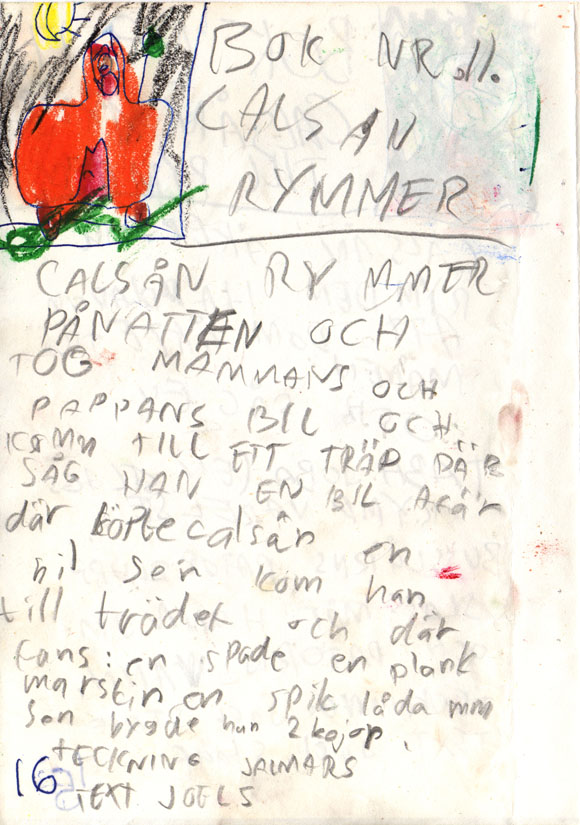 BOK NR.11.
CALSAN
RYMMER
CALSÅN RYMMER
PÅNATTEN OCH
TOG MAMMANS OCH
PAPPANS BIL OCH
KOMM TILL ETT TRÄD DÄR
SÅG HAN EN BIL
där köpte calsån en
bil sen kom han
till trädet och där
fans: en spade en plank
en spik låda mm
sen bygde han 2 kojor.
TECKNING JALMARS
16 TEXT JOELS